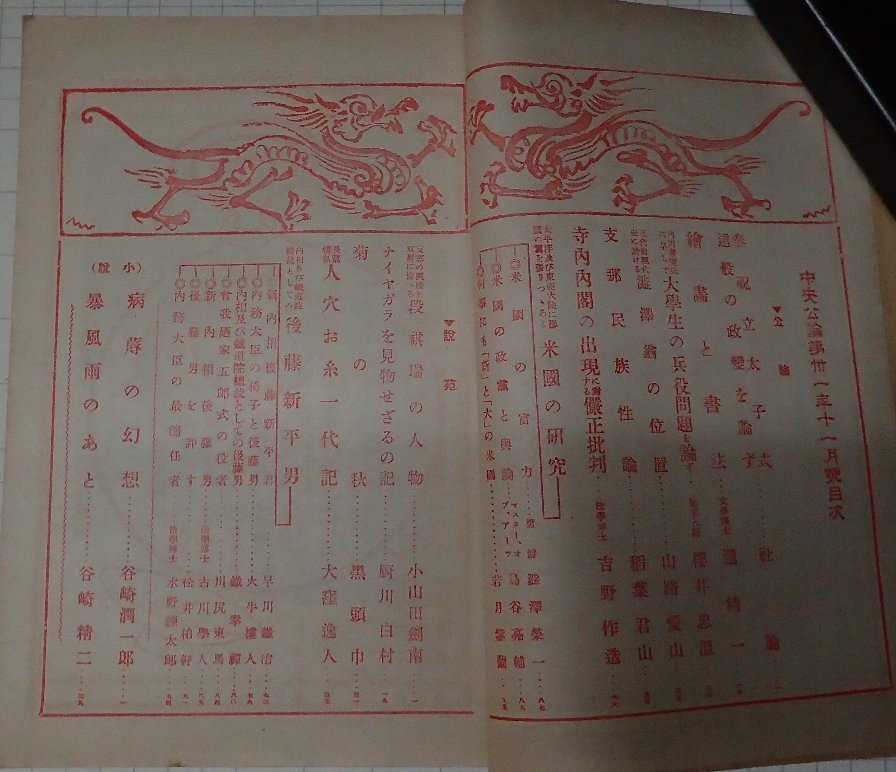 中央公論第卅一年十一月號目次
▼公論
奉祝立太子式
過般の政變を論ず……社論
繪畫と書法……文學博士 瀧精一
大學生の兵役問題を論ず……櫻井忠溫
澁澤翁の位置……山路愛山
支那民族性論……稻葉君山
寺内内閣の出現に對する嚴正批判……法學博士 吉野作造
米國の研究
◎米國の富力……男爵 澁澤榮一
◎米國の政黨と輿論……マスター、オブ、アーツ 鳥谷亮輔
「大」の米國……若月紫蘭
▼說苑
段祺瑞の人物……小山田劍南
ナイヤガラを見物せざるの記……厨川白村
菊の秋……黑頭巾
人穴お糸一代記……大窪逸人
內相及び鐵道院總裁としての後藤新平男
◎新內相後藤新平君……早川鐵冶
◎內務大臣の椅子と後藤男……火牛樓人
◎內相及び鐵道院總裁としての後藤男……鐵拳禪
◎曾我廼家五郎式の役者……川尻東馬
◎新內相後藤男……法學博士 古川學人
◎後藤男を評す……松井柏軒
◎內務大臣の最適任者……法學博士 水野鍊太郎
(小說)
病蓐の幻想……谷崎潤一郎
暴風雨のあと……谷崎精二